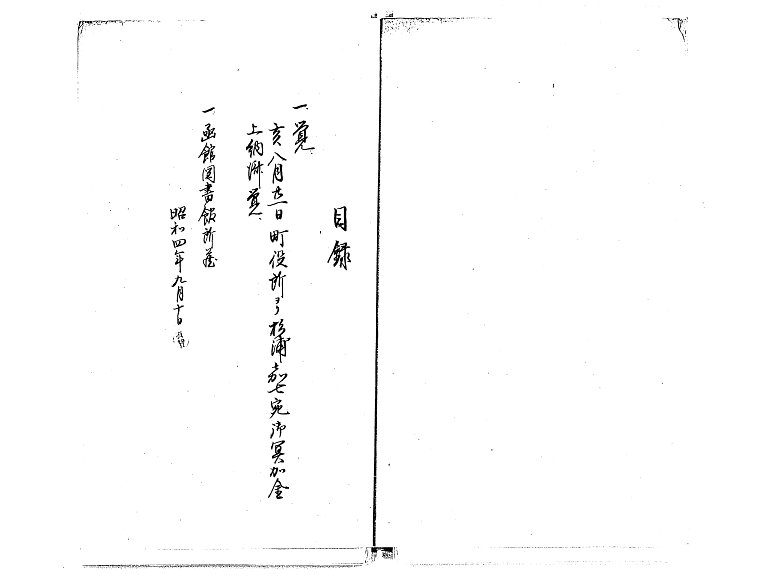 目録
一、覚
亥八月廿一日町役所ヨリ杉浦嘉七宛御冥加金
上納済覚
一、函館図書館所蔵
昭和四年九月十日